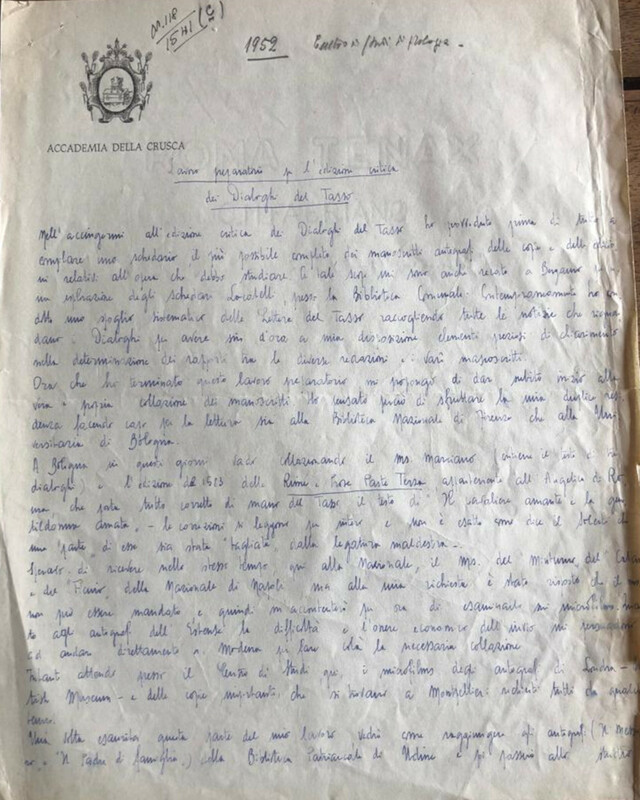 N. 118
15 H1 (C)
1952 Centro di Studi di filologia -
ACCADEMIA DELLA CRUSCA
ROMA TENAX
Lavoro preparatorio per l'edizione critica
dei Dialoghi del Tasso
Nell'accingermi all'edizione critica dei Dialoghi del Tasso ho provveduto prima di tutto a
compilare uno schedario il più possibile completo dei manoscritti autografi delle copie e delle
relativi all'opera che debbo studiare. A tale scopo mi sono anche recato a Bergamo
un esplorazione degli schedari Locatelli presso la Biblioteca Comunale. Contemporaneamente ho
uno spoglio sistematico delle Lettere del Tasso raccogliendo tutte le notizie che
i Dialoghi per avere sin d'ora a mia disposizione elementi preziosi di chiarimento
nella determinazione dei rapporti tra le diverse redazioni e i vari manoscritti.
Ora che ho terminato questo lavoro preparatorio mi propongo di dar subito inizio alla
vera e propria collazione dei manoscritti. Ho pensato perciò di sfruttare la mia duplice resi
denza facendo caso per la lettura sia alla Biblioteca Nazionale di Firenze che alla Uni
versitaria di Bologna.
A Bologna in questi giorni vado collazionando il ms. Marciano
dialoghi) e l'edizione del 1583 delle Rime e Prose Parte Terza appartenente all'Angelica di Ro
ma, che porta tutto corretto di mano del Tasso il testo di "Il cavaliere amante e la gen
tildonna amata" - le correzioni si leggono per intero e non è esatto come dice il Solerti che
una "parte" di esse sia stata "tagliata" dalla legatura maldestra -
Speravo di ricevere nello stesso tempo qui alla Nazionale, il ms. del Minturno del
e del Ficino, della Nazionale di Napoli ma alla mia richiesta è stato risposto che il
non può essere mandato e quindi mi accontenterò per ora di esaminarlo in microfilm.
to agli autografi dell'Estense la difficoltà e l'onere economico dell'invio mi
ad andare direttamente a Modena per fare colà la necessaria collazione
Intanto attendo presso il Centro di Studi qui, i microfilms degli autografi di Londra -
tish Museum - e delle copie importanti che si trovano a Montpellier: richiesti tutti da qualche
tempo.
Una volta esaurita questa parte del mio lavoro vedrò come raggiungere gli autografi ("Il
" e "Il Padre di famiglia") della Biblioteca Patriarcale di Udine e poi passerò allo